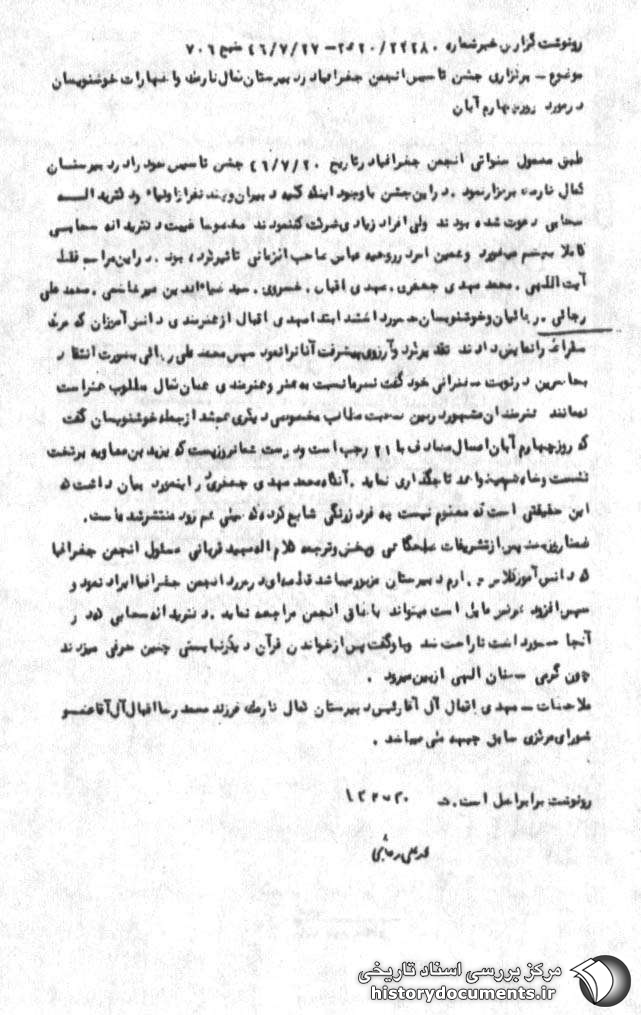 رونوشت گزارش خبر شماره ۲۲۲۸۰/۲۰ﻫ۳ - ۴۶/۷/۲۷ منبع ۷۰۶
موضوع - برگزاری جشن تاسیس انجمن جغرافیا در دبیرستان کمال نارمک و اظهارات خوشنویسان
در مورد روز چهارم آبان
طبق معمول سنواتی انجمن جغرافیا در تاریخ ۴۶/۷/۲۰ جشن تاسیس خود را در دبیرستان
کمال نارمک برگزار نمود . در این جشن با وجود اینکه کلیه دبیران و چند نفر از اولیاء و دکتر یدالله
سحابی دعوت شده بودند ولی افراد زیادی شرکت ننمودند مخصوصا غیبت دکتر یدالله سحابی
کاملا بچشم میخورد و همین امر در روحیه عباس صاحب الزمانی تاثیر کرده بود . در این مراسم فقط
آیت اللهی . محمد مهدی جعفری . مهدی اقبال . خسروی . سید ضیاءالدین میرهاشمی . محمد علی
رجائی . و خوشنویسان حضور داشتند ابتدا مهدی اقبال از هنرمندی دانش آموزان که مرگ
سقراط را نمایش دادند تقدیر کرد و آرزوی پیشرفت آنانرا نمود سپس محمد علی رجائی بصورت انتقاد
بحاضرین در نوبت سخنرانی خود گفت نسبت به هنر و هنرمندی همان کمال مطلوب هنر است
هنرمندان مشهود در بین صحبت مطالب مخصوصی دیگری خوشنویسان گفت
که روز چهارم آبان امسال مصادف با ۲۱ رجب است و درست شما روزیست که یزید بن معاویه بر تخت
نشست و شاه هم میخواهد تاجگذاری نماید . آنگاه محمد مهدی جعفری در اینمورد بیان داشت
این حقیقتی است که معلوم نیست چه فرد زرنگی شایع کرده خیلی هم زود منتشر شده است .
ضمنا روز جشن پس از تشریفات صبحگاهی و پخش و ترجمه کلام الله مجید قربانی مسئول انجمن جغرافیا
که دانش آموز کلاس چهارم دبیرستان مزبور میباشد مقدمه ای در مورد انجمن جغرافیا ایراد نمود و
سپس افزود هر کس مایل است میتواند با طاق انجمن مراجعه نماید . دکتر یدالله سحابی که در
آنجا حضور داشت ناراحت شد و باو گفت پس از خواندن قرآن دیگر نبایستی چنین حرفی میزدند
چون گرمی سخنان الهی از بین میرود .
ملاحظات - مهدی اقبال آل آقا رئیس دبیرستان کمال نارمک فرزند محمد رضا اقبال آل آقا عضو
شورای مرکزی سابق جبهه ملی میباشد .
رونوشت برابر اصل است .
محمد علی رجائی
مرکز بررسی اسناد تاریخی
historydocuments.ir